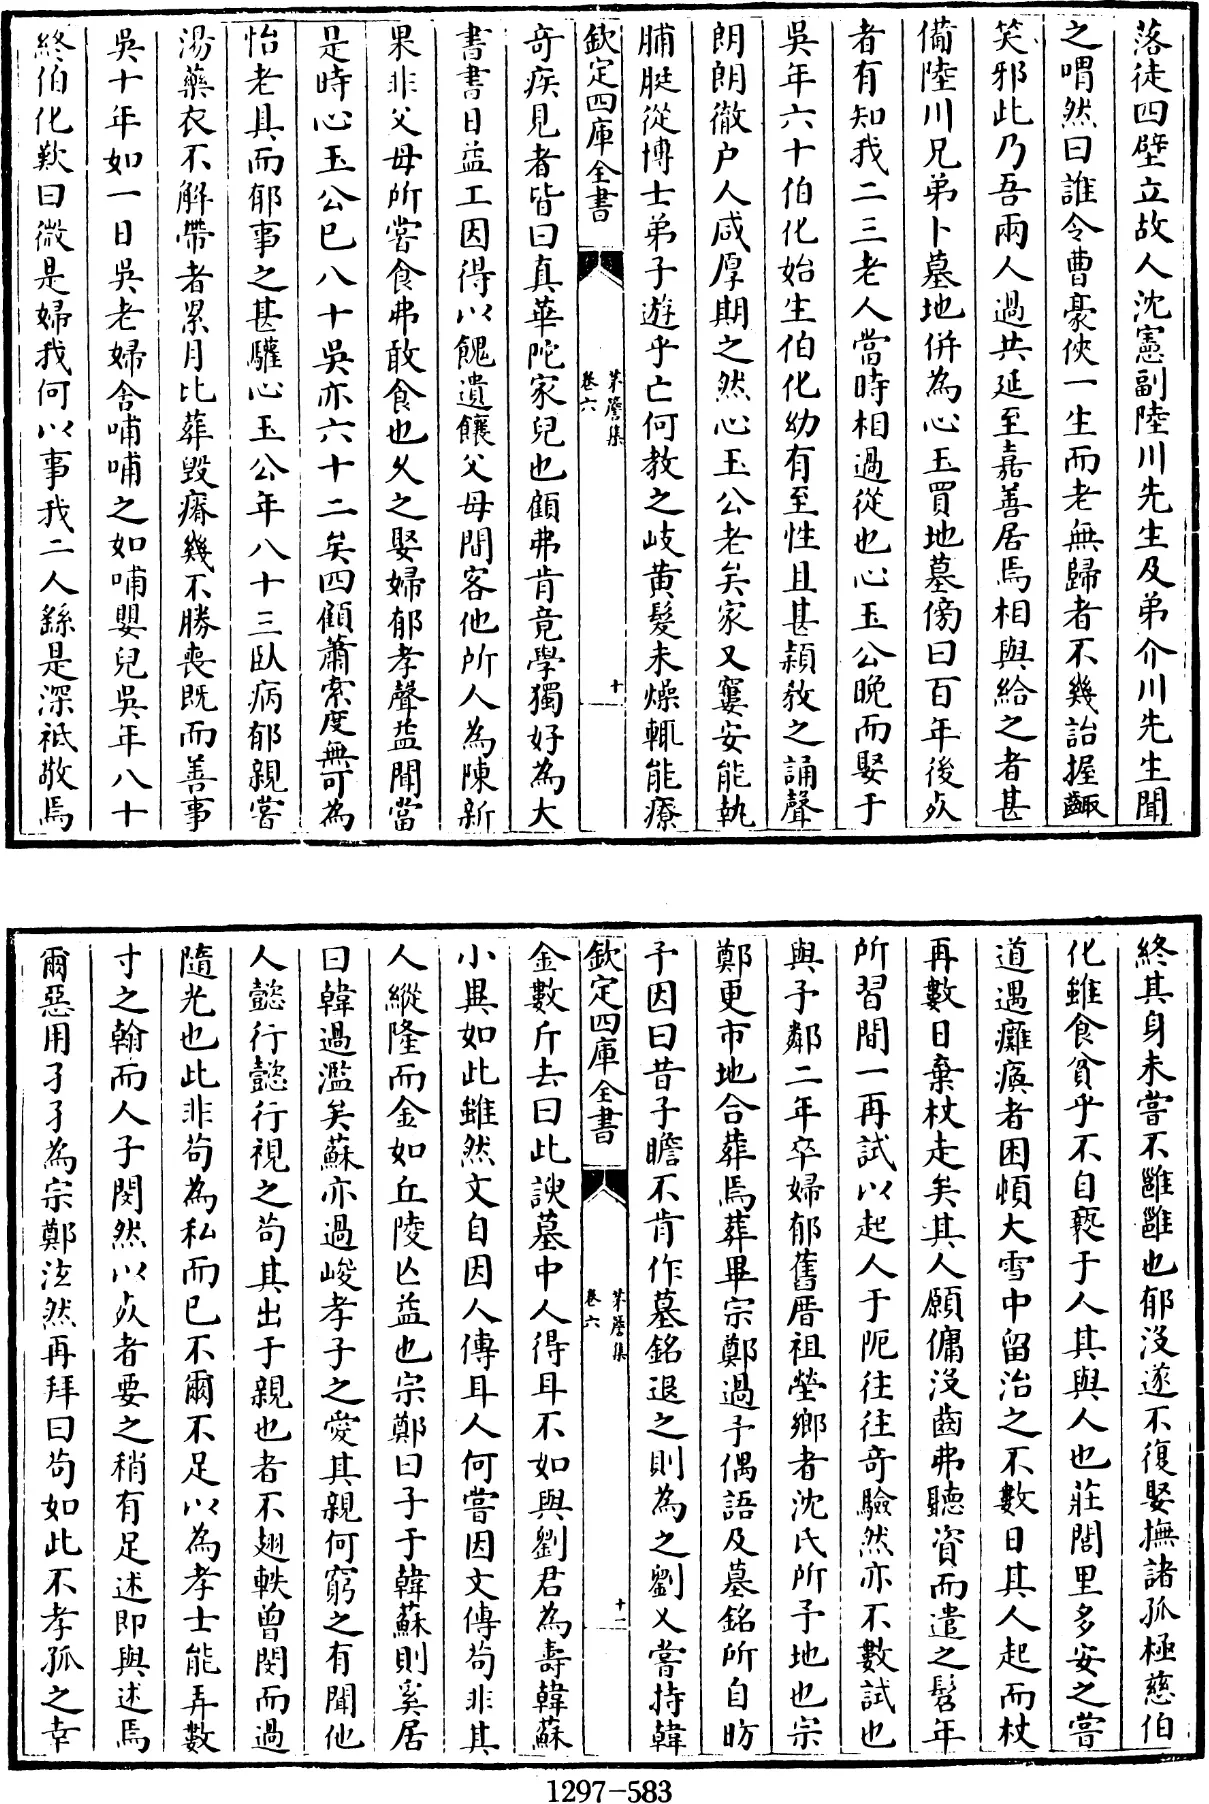 落徒四壁立故人沈憲副陸川先生及弟介川先生聞
之喟然曰誰令曹豪俠一生而老無歸者不幾詒握齱
笑邪此乃吾兩人過共延至嘉善居焉相與給之者甚
備陸川兄弟卜墓地併為心玉買地墓傍曰百年後死
者有知我二三老人當時相過從也心玉公晚而娶于
吳年六十伯化始生伯化幼有至性且甚穎教之誦聲
朗朗徹户人咸厚期之然心玉公老矣家又窶安能執
脯脡從博士弟子遊乎亡何教之岐黄髮未燥輒能療
欽定四庫全書
茅簷集
卷六
十
奇疾見者皆曰真華陀家兒也顧弗肯竟學獨好為大
書書日益工因得以餽遺饟父母間客他所人為陳新
果非父母所嘗食弗敢食也久之娶婦郁孝聲益聞當
是時心玉公已八十吳亦六十二矣四顧蕭索度無可為
怡老具而郁事之甚驩心玉公年八十三臥病郁親嘗
湯藥衣不解帶者累月比葬毁瘠幾不勝喪既而善事
吳十年如一日吳老婦含哺哺之如哺嬰兒吳年八十
終伯化歎曰微是婦我何以事我二人繇是深祗敬焉
終其身未嘗不雝雝也郁沒遂不復娶撫諸孤極慈伯
化雖食貧乎不自褻于人其與人也莊閭里多安之嘗
道遇癱瘓者困頓大雪中留治之不數日其人起而杖
再數日棄杖走矣其人願傭沒齒弗聽資而遣之髫年
所習間一再試以起人于阨往往奇驗然亦不數試也
與予鄰二年卒婦郁舊厝祖塋鄉者沈氏所予地也宗
鄭更市地合葬焉葬畢宗鄭過予偶語及墓銘所自昉
予因曰昔子瞻不肯作墓銘退之則為之劉乂嘗持韓
欽定四庫全書
茅簷集
卷六
十一
金數斤去曰此諛墓中人得耳不如與劉君為壽韓蘇
小異如此雖然文自因人傳耳人何嘗因文傳茍非其
人縱隆而金如丘陵亡益也宗鄭曰子于韓蘇則奚居
曰韓過濫矣蘇亦過峻孝子之愛其親何窮之有聞他
人懿行懿行視之茍其出于親也者不翅軼曾閔而過
隨光也此非茍為私而已不爾不足以為孝士能弄數
寸之翰而人子閔然以死者要之稍有足述即與述焉
爾惡用孑孑為宗鄭泫然再拜曰茍如此不孝孤之幸
1297-583